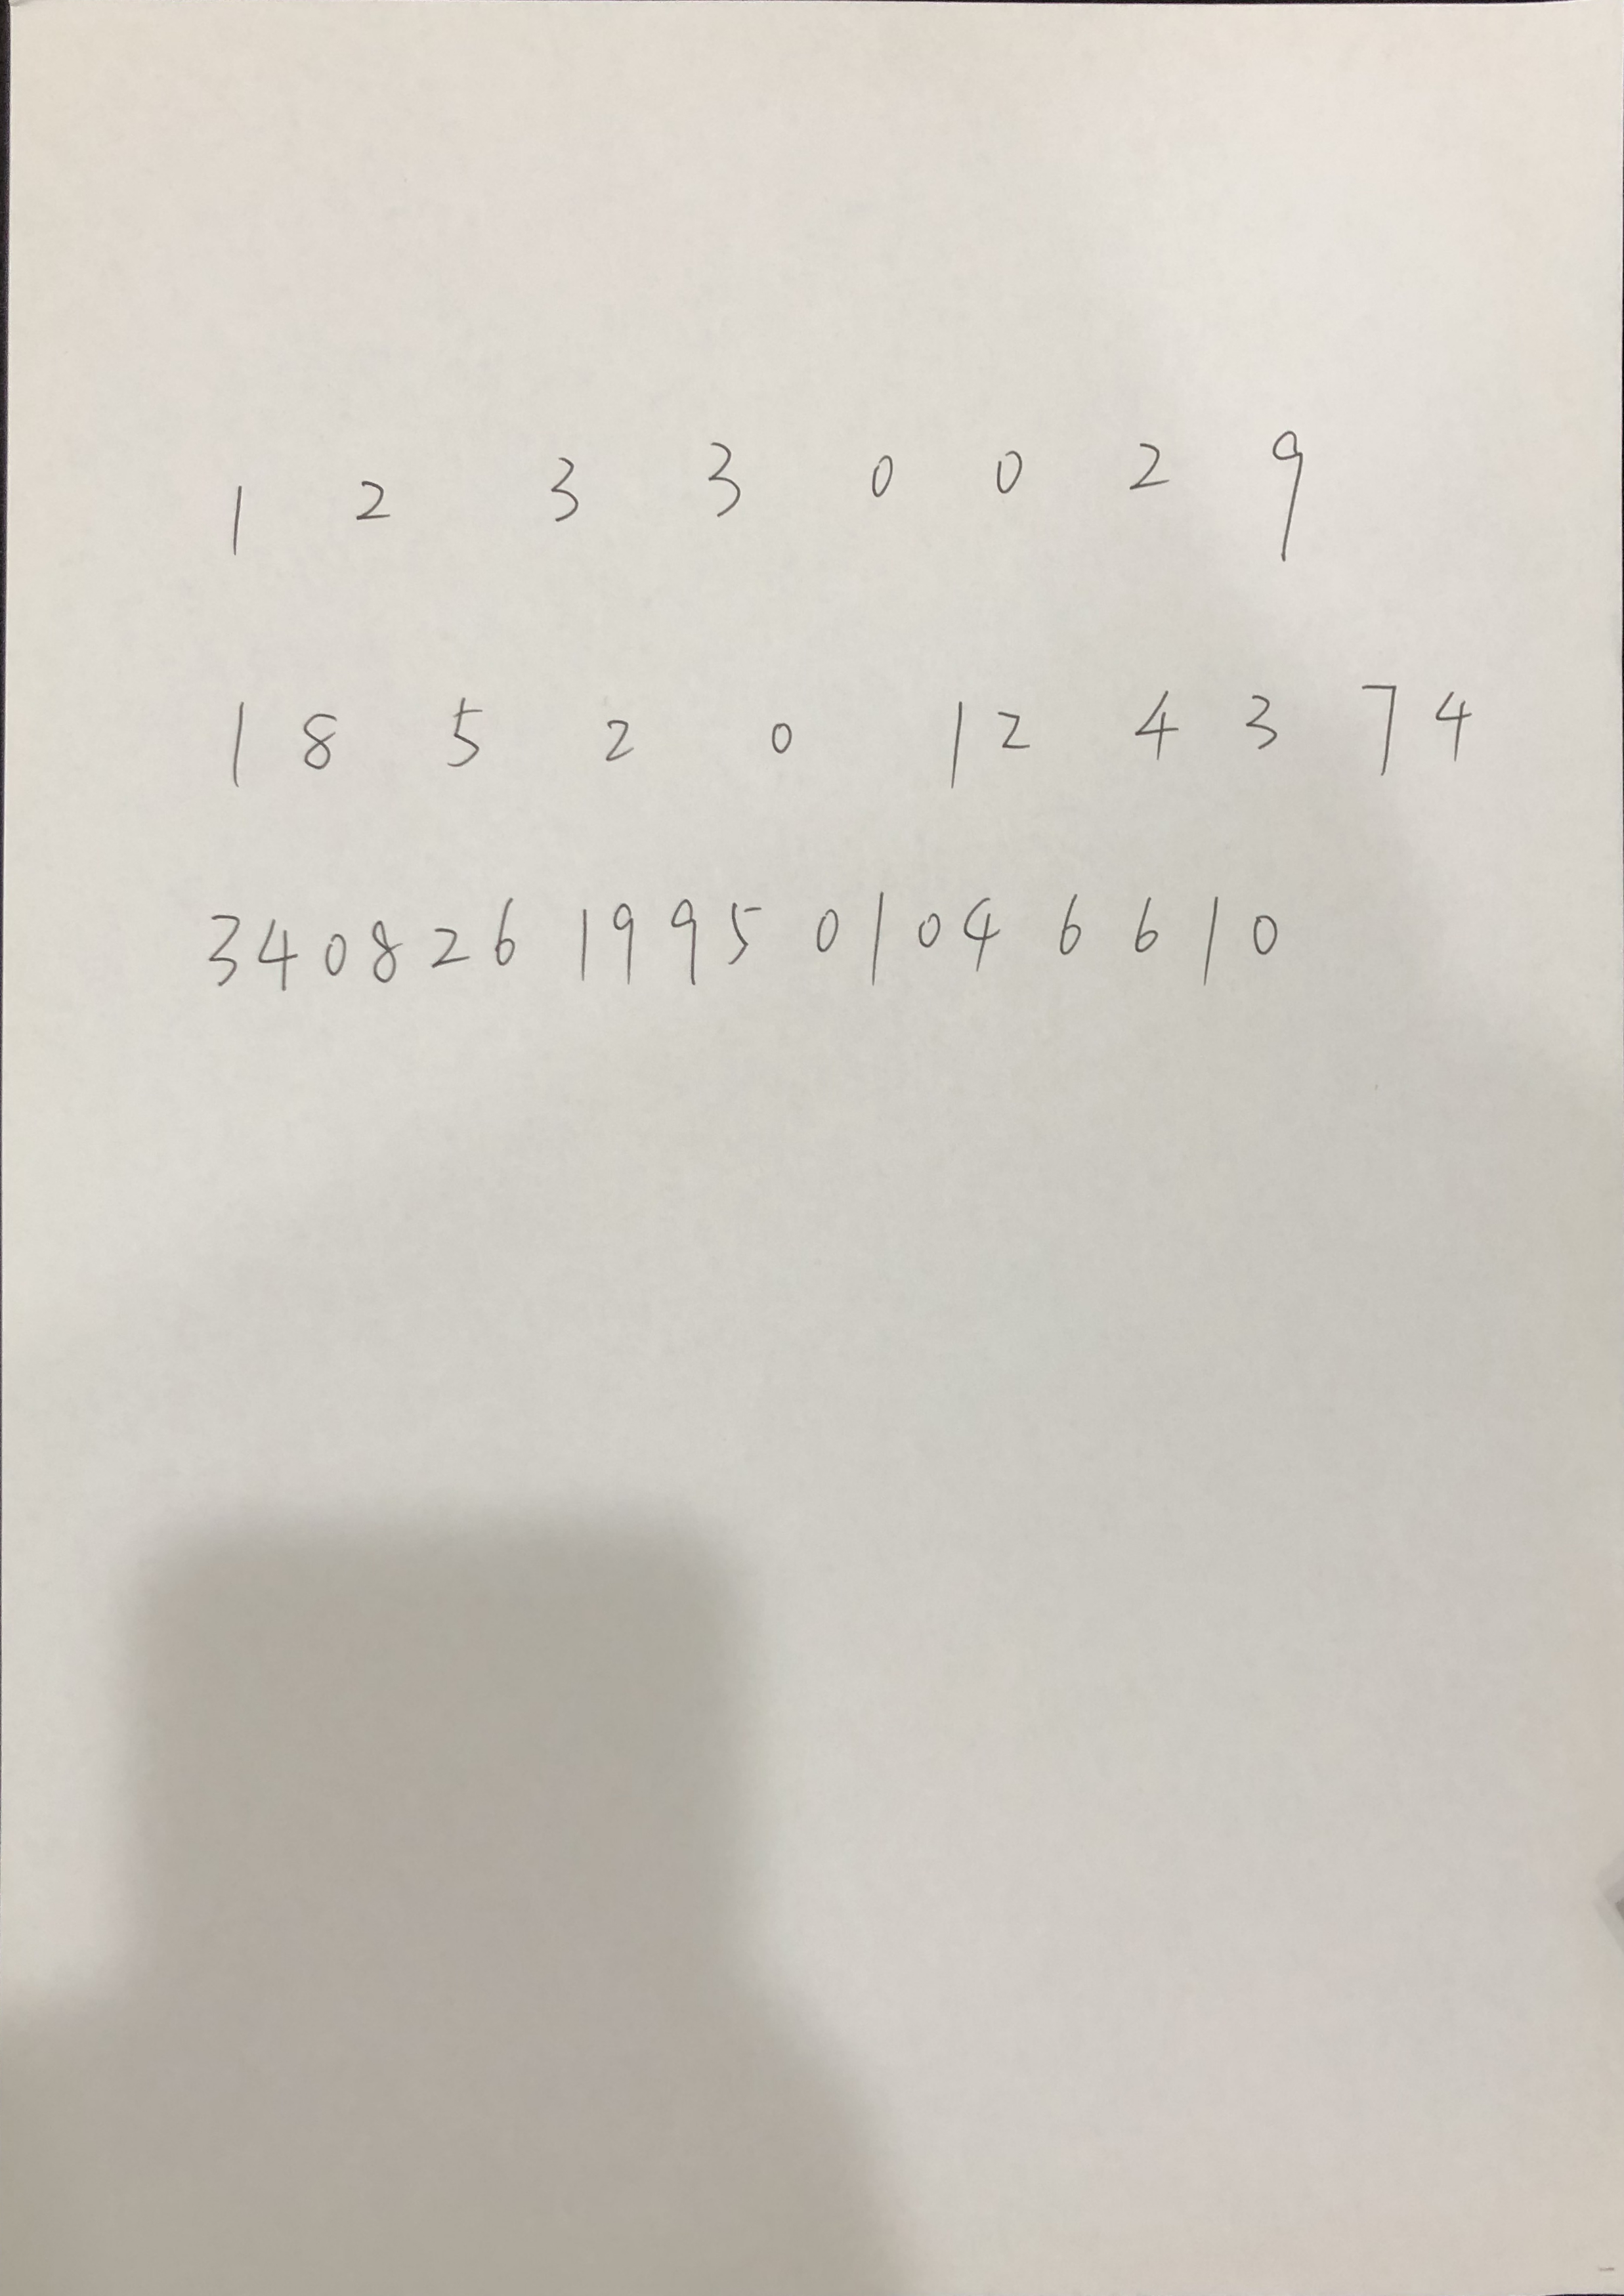 1 2 3 3 0 0 2 9
1 8 5 2 0 1 2 4 3 7 4
340826 1995 0104 6 6 1 0